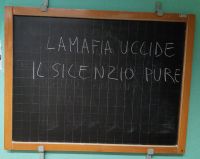 LA MAFIA UCCIDE
IL SILENZIO PURE